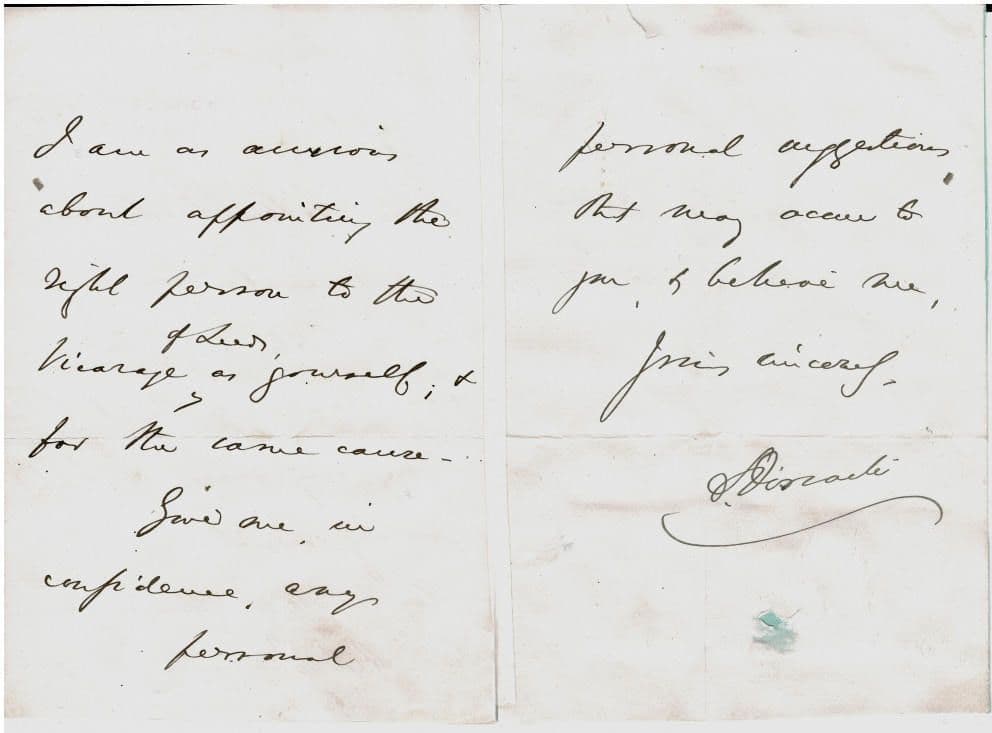 I am as anxious
about appointing the
right person to the
of Leeds,
Vicarage as yourself; &
for the same cause -
Give me, in
confidence, any
personal
personal suggestions
that may occur to
you, & believe me,
Yours sincerely,
B. Disraeli